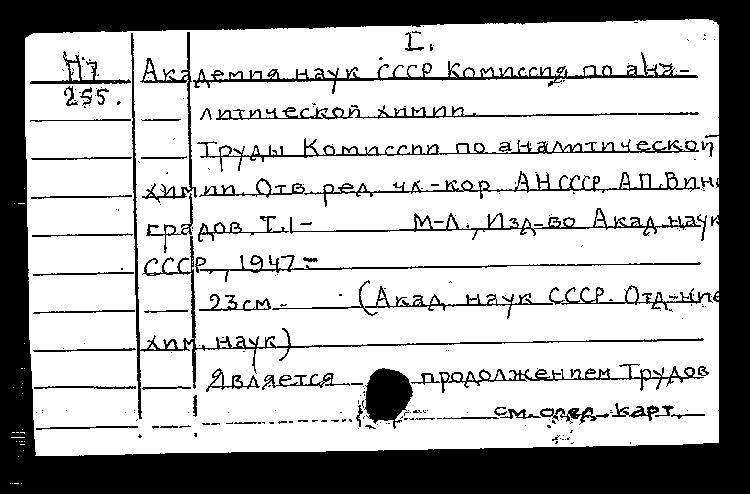 I.
П7
255.
Академия наук СССР Комиссия по ана-
литической химии.
Труды Комиссии по аналитической
химии. Отв. ред. чл.-кор. АН СССР. А.П. Вино
градов. Т.1- М-Л., Изд-во Акад. наук
СССР., 1947-
23 см. (Акад. наук СССР. Отд-ние
хим. наук)
Является продолжением Трудов
см. след. карт.